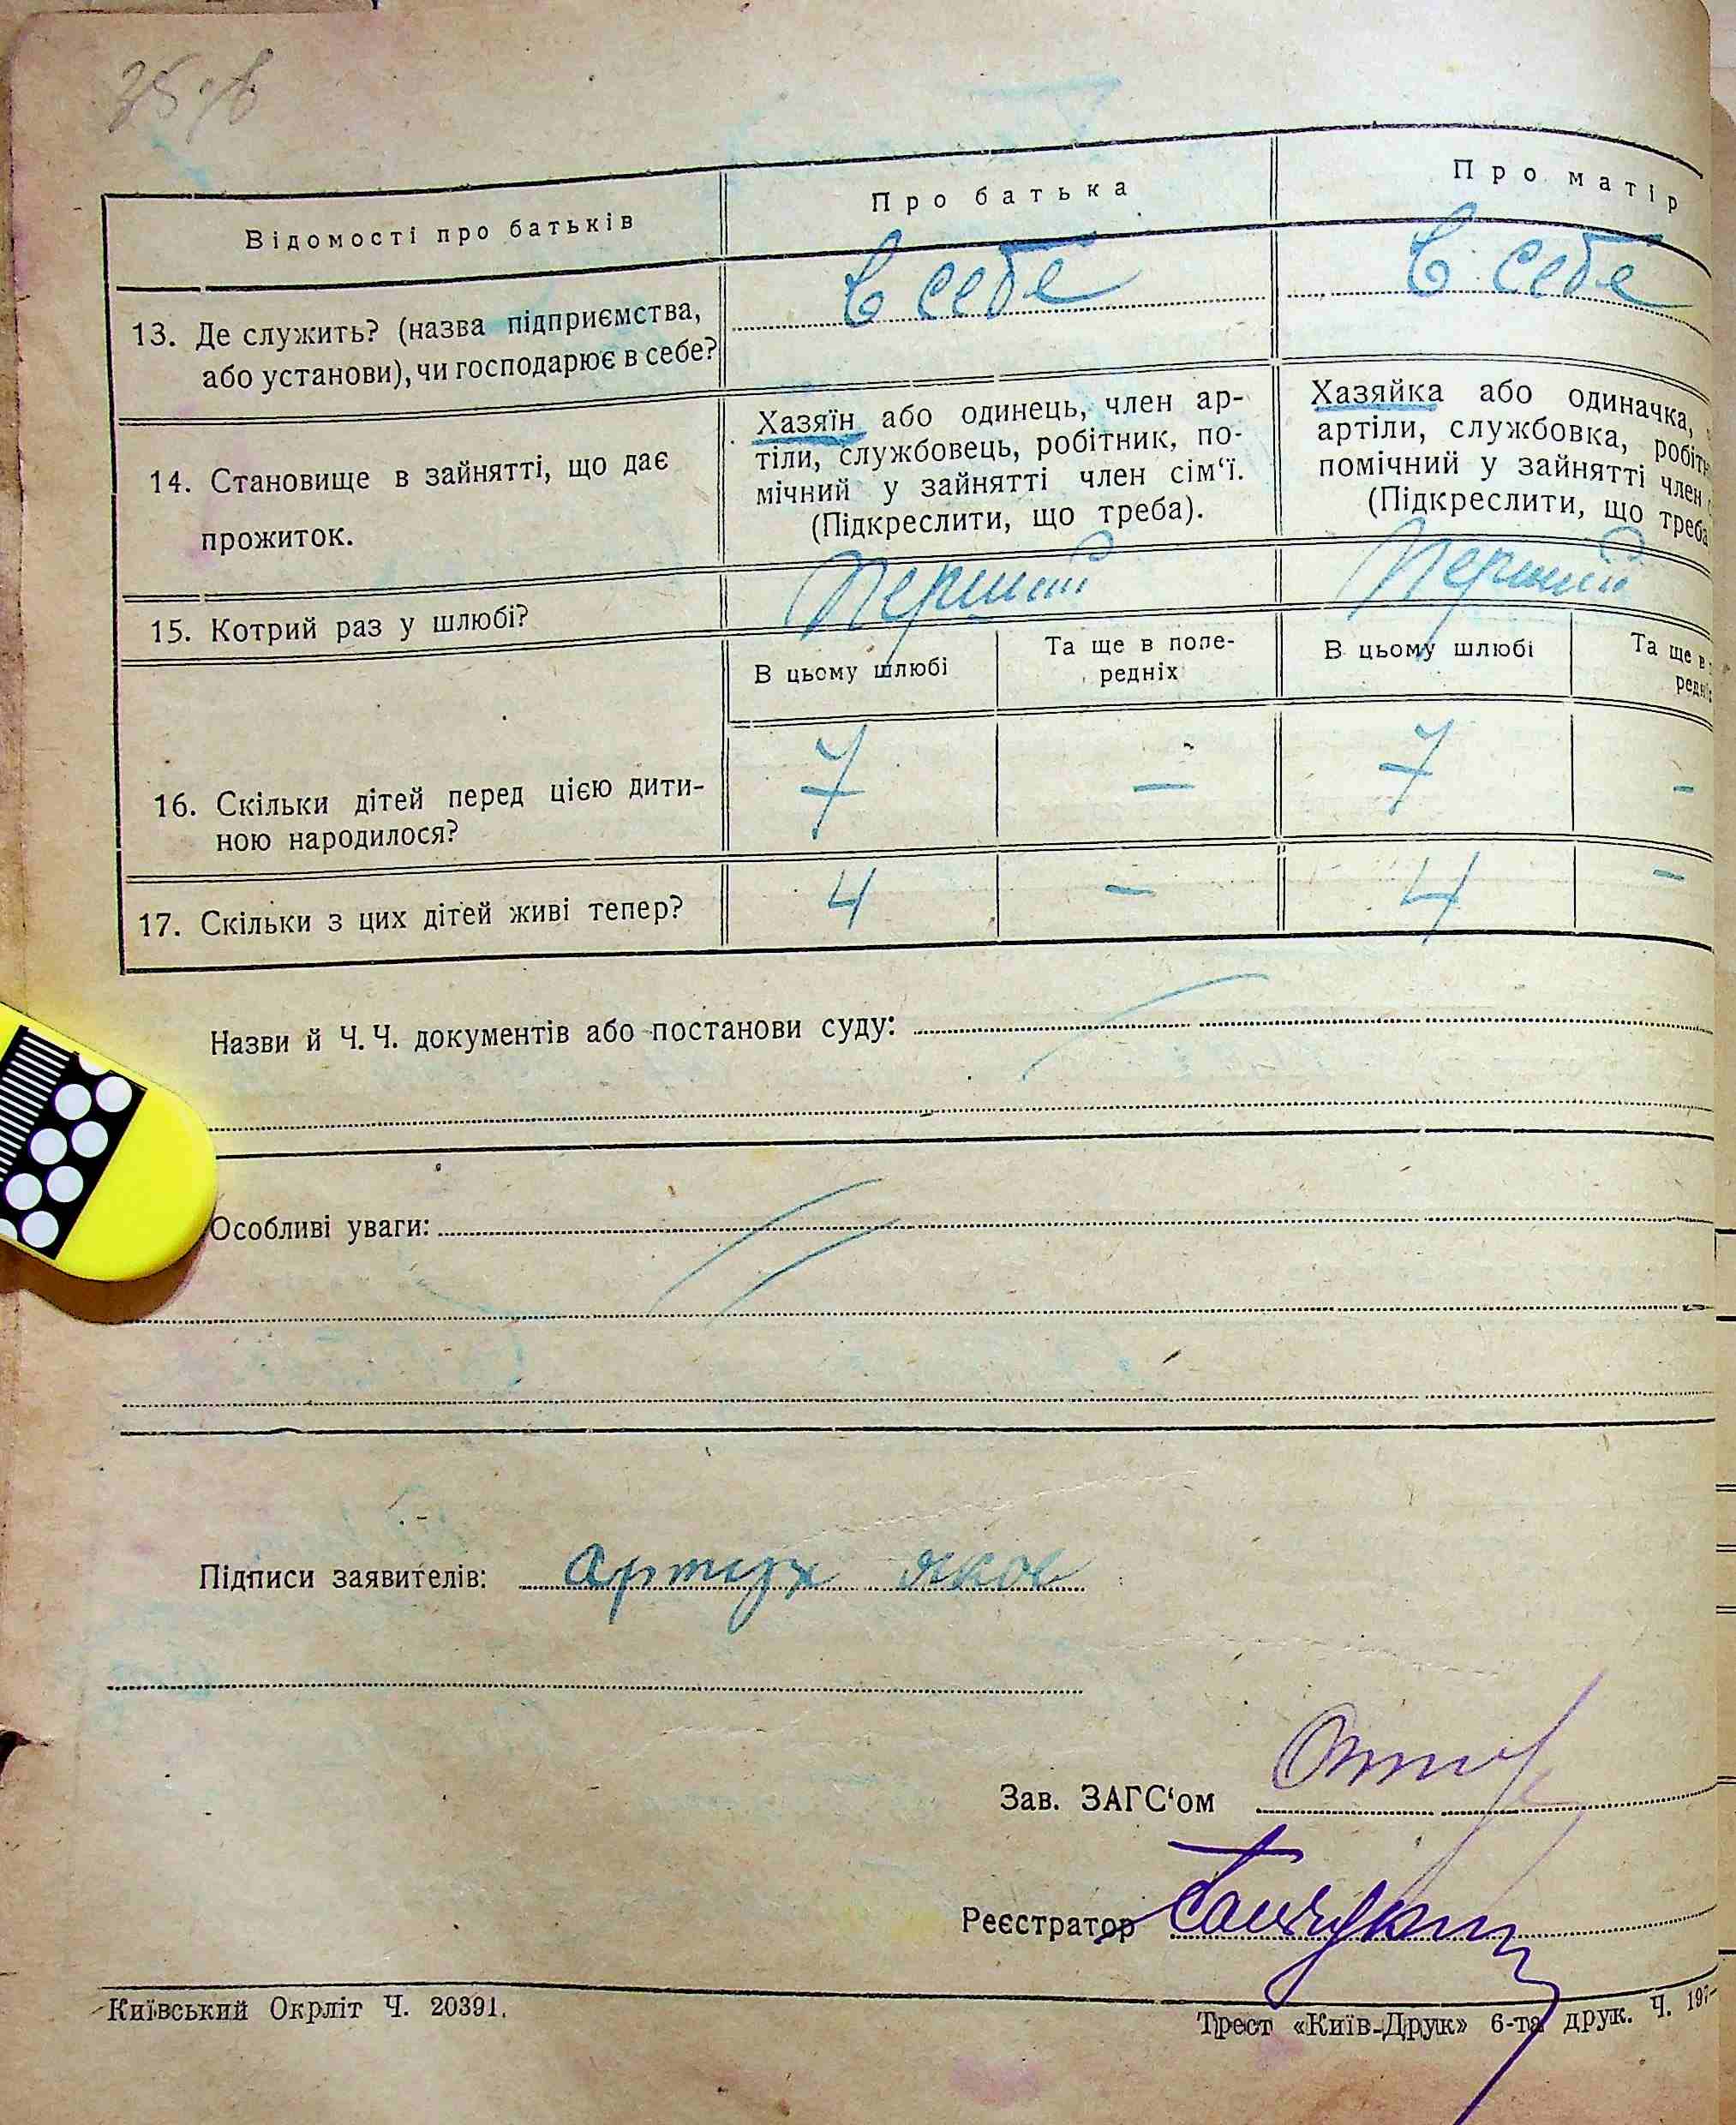 Відомості про батьків
Про батька
Про матір
13. Де служить? (назва підприємства,
або установи), чи господарює в себе?
в себе
в себе
14. Становище в зайнятті, що дає
прожиток.
Хазяїн або одинець, член ар-
тіли, службовець, робітник, по-
мічний у зайнятті член сім‘ї.
(Підкреслити, що треба).
Хазяйка або одиначка,
артіли, службовка, робітн
помічний у зайнятті член
(Підкреслити, що треба
15. Котрий раз у шлюбі?
Перший
Перший
В цьому шлюбі
Та ще в попе-
редніх
В цьому шлюбі
Та ще в
редні
16. Скільки дітей перед цією дити-
ною народилося?
7
—
7
—
17. Скільки з цих дітей живі тепер?
4
—
4
—
Назви й Ч. Ч. документів або постанови суду:
Особливі уваги:
Підписи заявителів: Артух Яков
Зав. ЗАГС‘ом
Реєстратор
Київський Окрліт Ч. 20391.
Трест «Київ-Друк» 6-та друк. Ч. 197